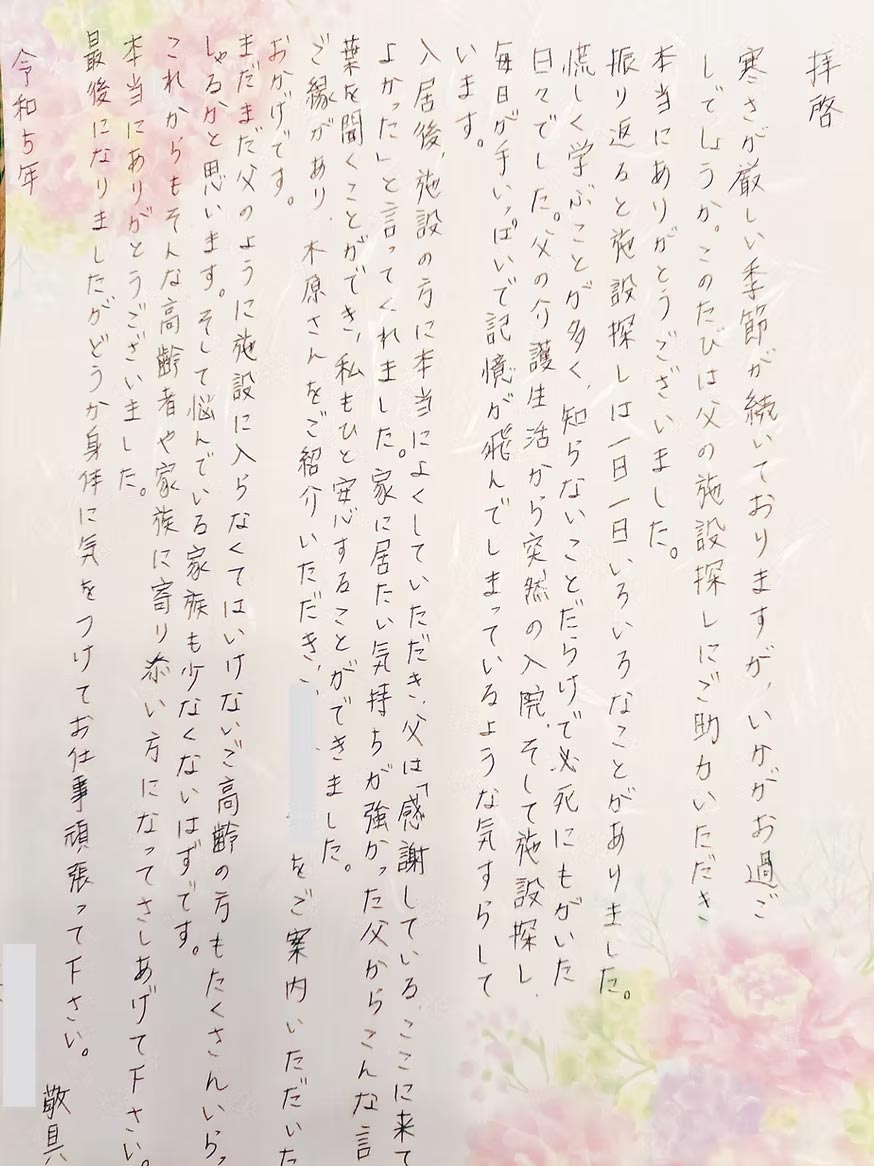 拝啓
寒さが厳しい季節が続いておりますが、いかがお過ご
しでしょうか。このたびは父の施設探しにご助力いただき
本当にありがとうございました。
振り返ると施設探しは一日一日いろいろなことがありました。
慌しく学ぶことが多く、知らないことだらけで必死にもがいた
日々でした。父の介護生活から突然の入院、そして施設探し、
毎日が手いっぱいで記憶が飛んでしまっているような気すらして
います。
入居後、施設の方に本当によくしていただき、父は「感謝している、ここに来て
よかった」と言ってくれました。家に居たい気持ちが強かった父からこんな言
葉を聞くことができ、私もひと安心することができました。
ご縁があり、木原さんをご紹介いただき、
をご案内いただいた
おかげです。
まだまだ父のように施設に入らなくてはいけないご高齢の方もたくさんいらっ
しゃるかと思います。そして悩んでいる家族も少なくないはずです。
これからもそんな高齢者や家族に寄り添い方になってさしあげて下さい。
本当にありがとうございました。
最後になりましたがどうか身体に気をつけてお仕事頑張って下さい。
敬具
令和5年